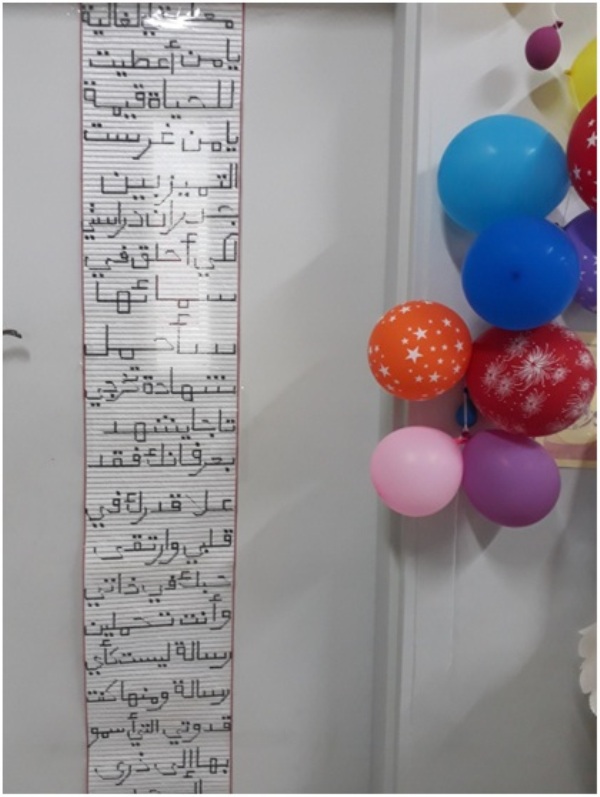 معلمتي الغالية
يامن أعطيت
للحياة قيمة
يامن غرست
التميز بين
جدران ذراتي
كي أحلق في
سمائها
سأحمل
شهادة تخرجي
تاجا يشهد
بعرفانك فقد
علا قدرك في
قلبي وارتقى
حبك في ذاتي
وأنت تحملين
رسالة ليست كأي
رسالة ومنهاكنت
قدوتي التي أسمو
بها إلى ذرى